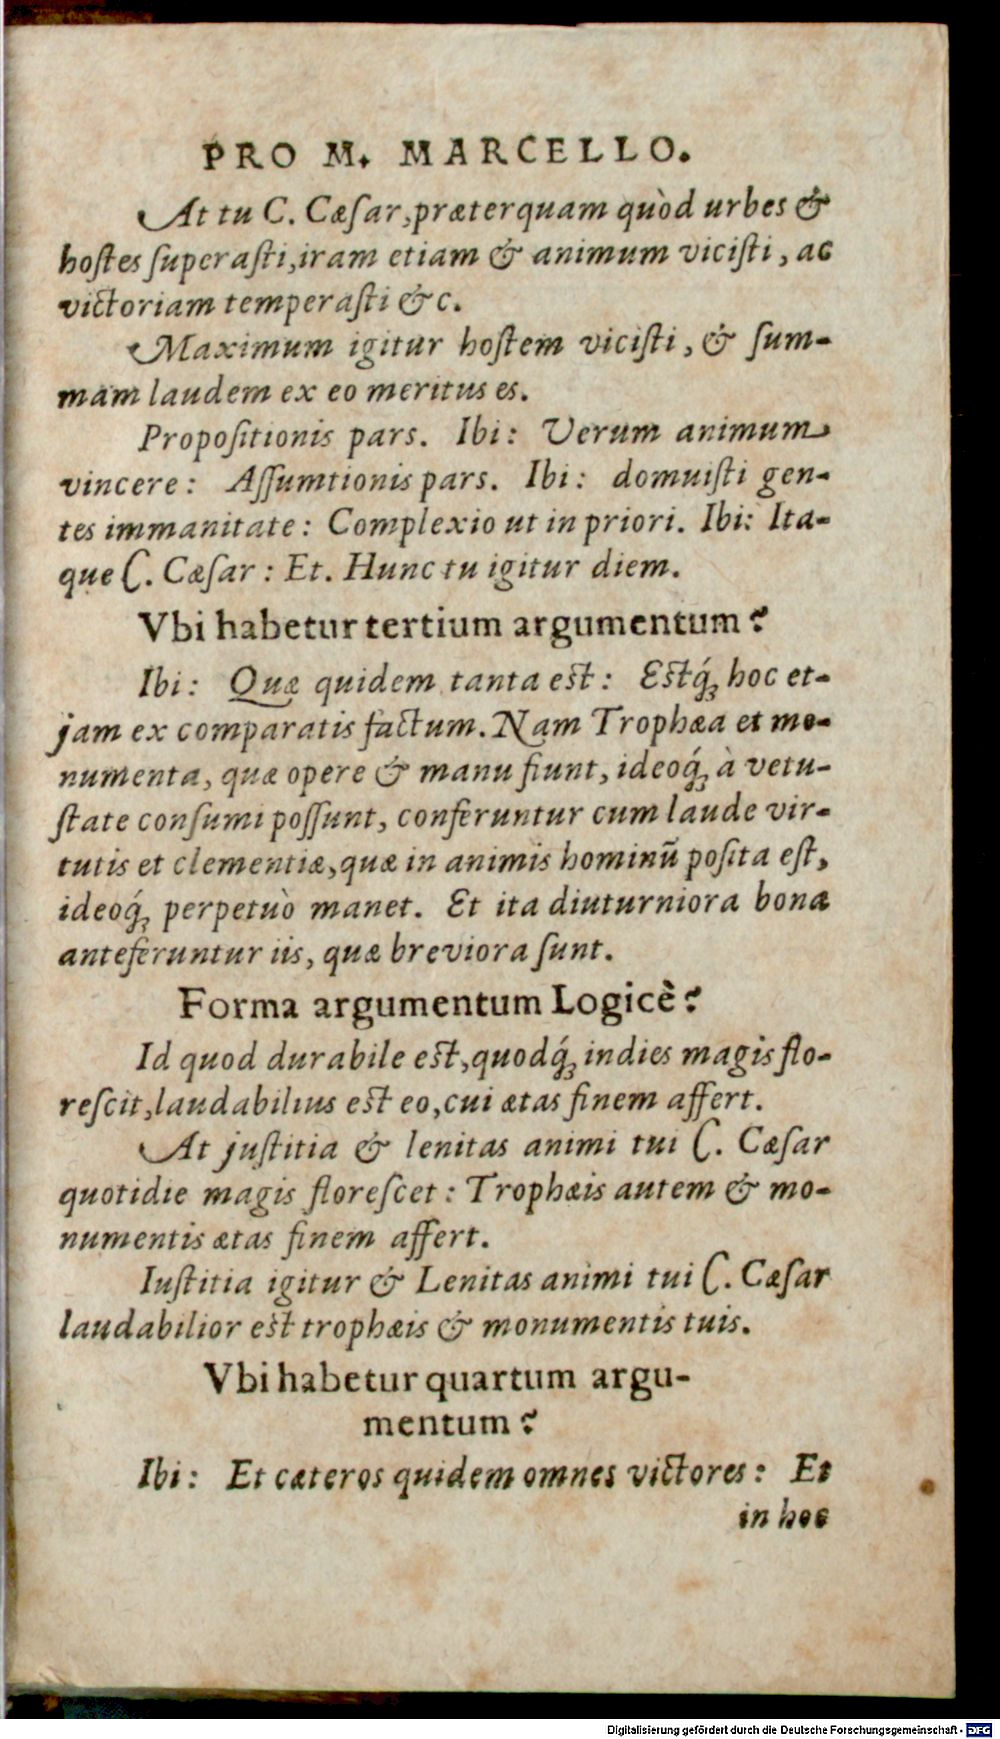 PRO M. MARCELLO.
At tu C. Cæſar, præterquam quòd urbes &
hoſtes ſuperaſti, iram etiam & animum viciſti, ac
victoriam temperaſti &c.
Maximum igitur hoſtem viciſti, & ſum-
mam laudem ex eo meritus es.
Propoſitionis pars. Ibi: Verum animum
vincere: Aſſumtionis pars. Ibi: domuiſti gen-
tes immanitate: Complexio ut in priori. Ibi: Ita-
que C. Cæſar: Et. Hunc tu igitur diem.
Vbi habetur tertium argumentum?
Ibi: Quæ quidem tanta est: Estq́ꝫ hoc et-
jam ex comparatis factum. Nam Trophæa et mo-
numenta, quæ opere & manu fiunt, ideoq́ꝫ à vetu-
ſtate conſumi poſſunt, conferuntur cum laude vir-
tutis et clementiæ, quæ in animis hominū poſita eſt,
ideoq́ꝫ perpetuò manet. Et ita diuturniora bona
anteferuntur iis, quæ breviora ſunt.
Forma argumentum Logicè?
Id quod durabile est, quodq́ꝫ indies magis flo-
reſcit, laudabilius est eo, cui ætas finem affert.
At juſtitia & lenitas animi tui C. Cæſar
quotidie magis floreſcet: Trophæis autem & mo-
numentis ætas finem affert.
Iuſtitia igitur & Lenitas animi tui C. Cæſar
laudabilior est trophæis & monumentis tuis.
Vbi habetur quartum argu-
mentum?
Ibi: Et cæteros quidem omnes victores: Et
in hoc
Digitalisierung gefördert durch die Deutsche Forschungsgemeinschaft - DFG